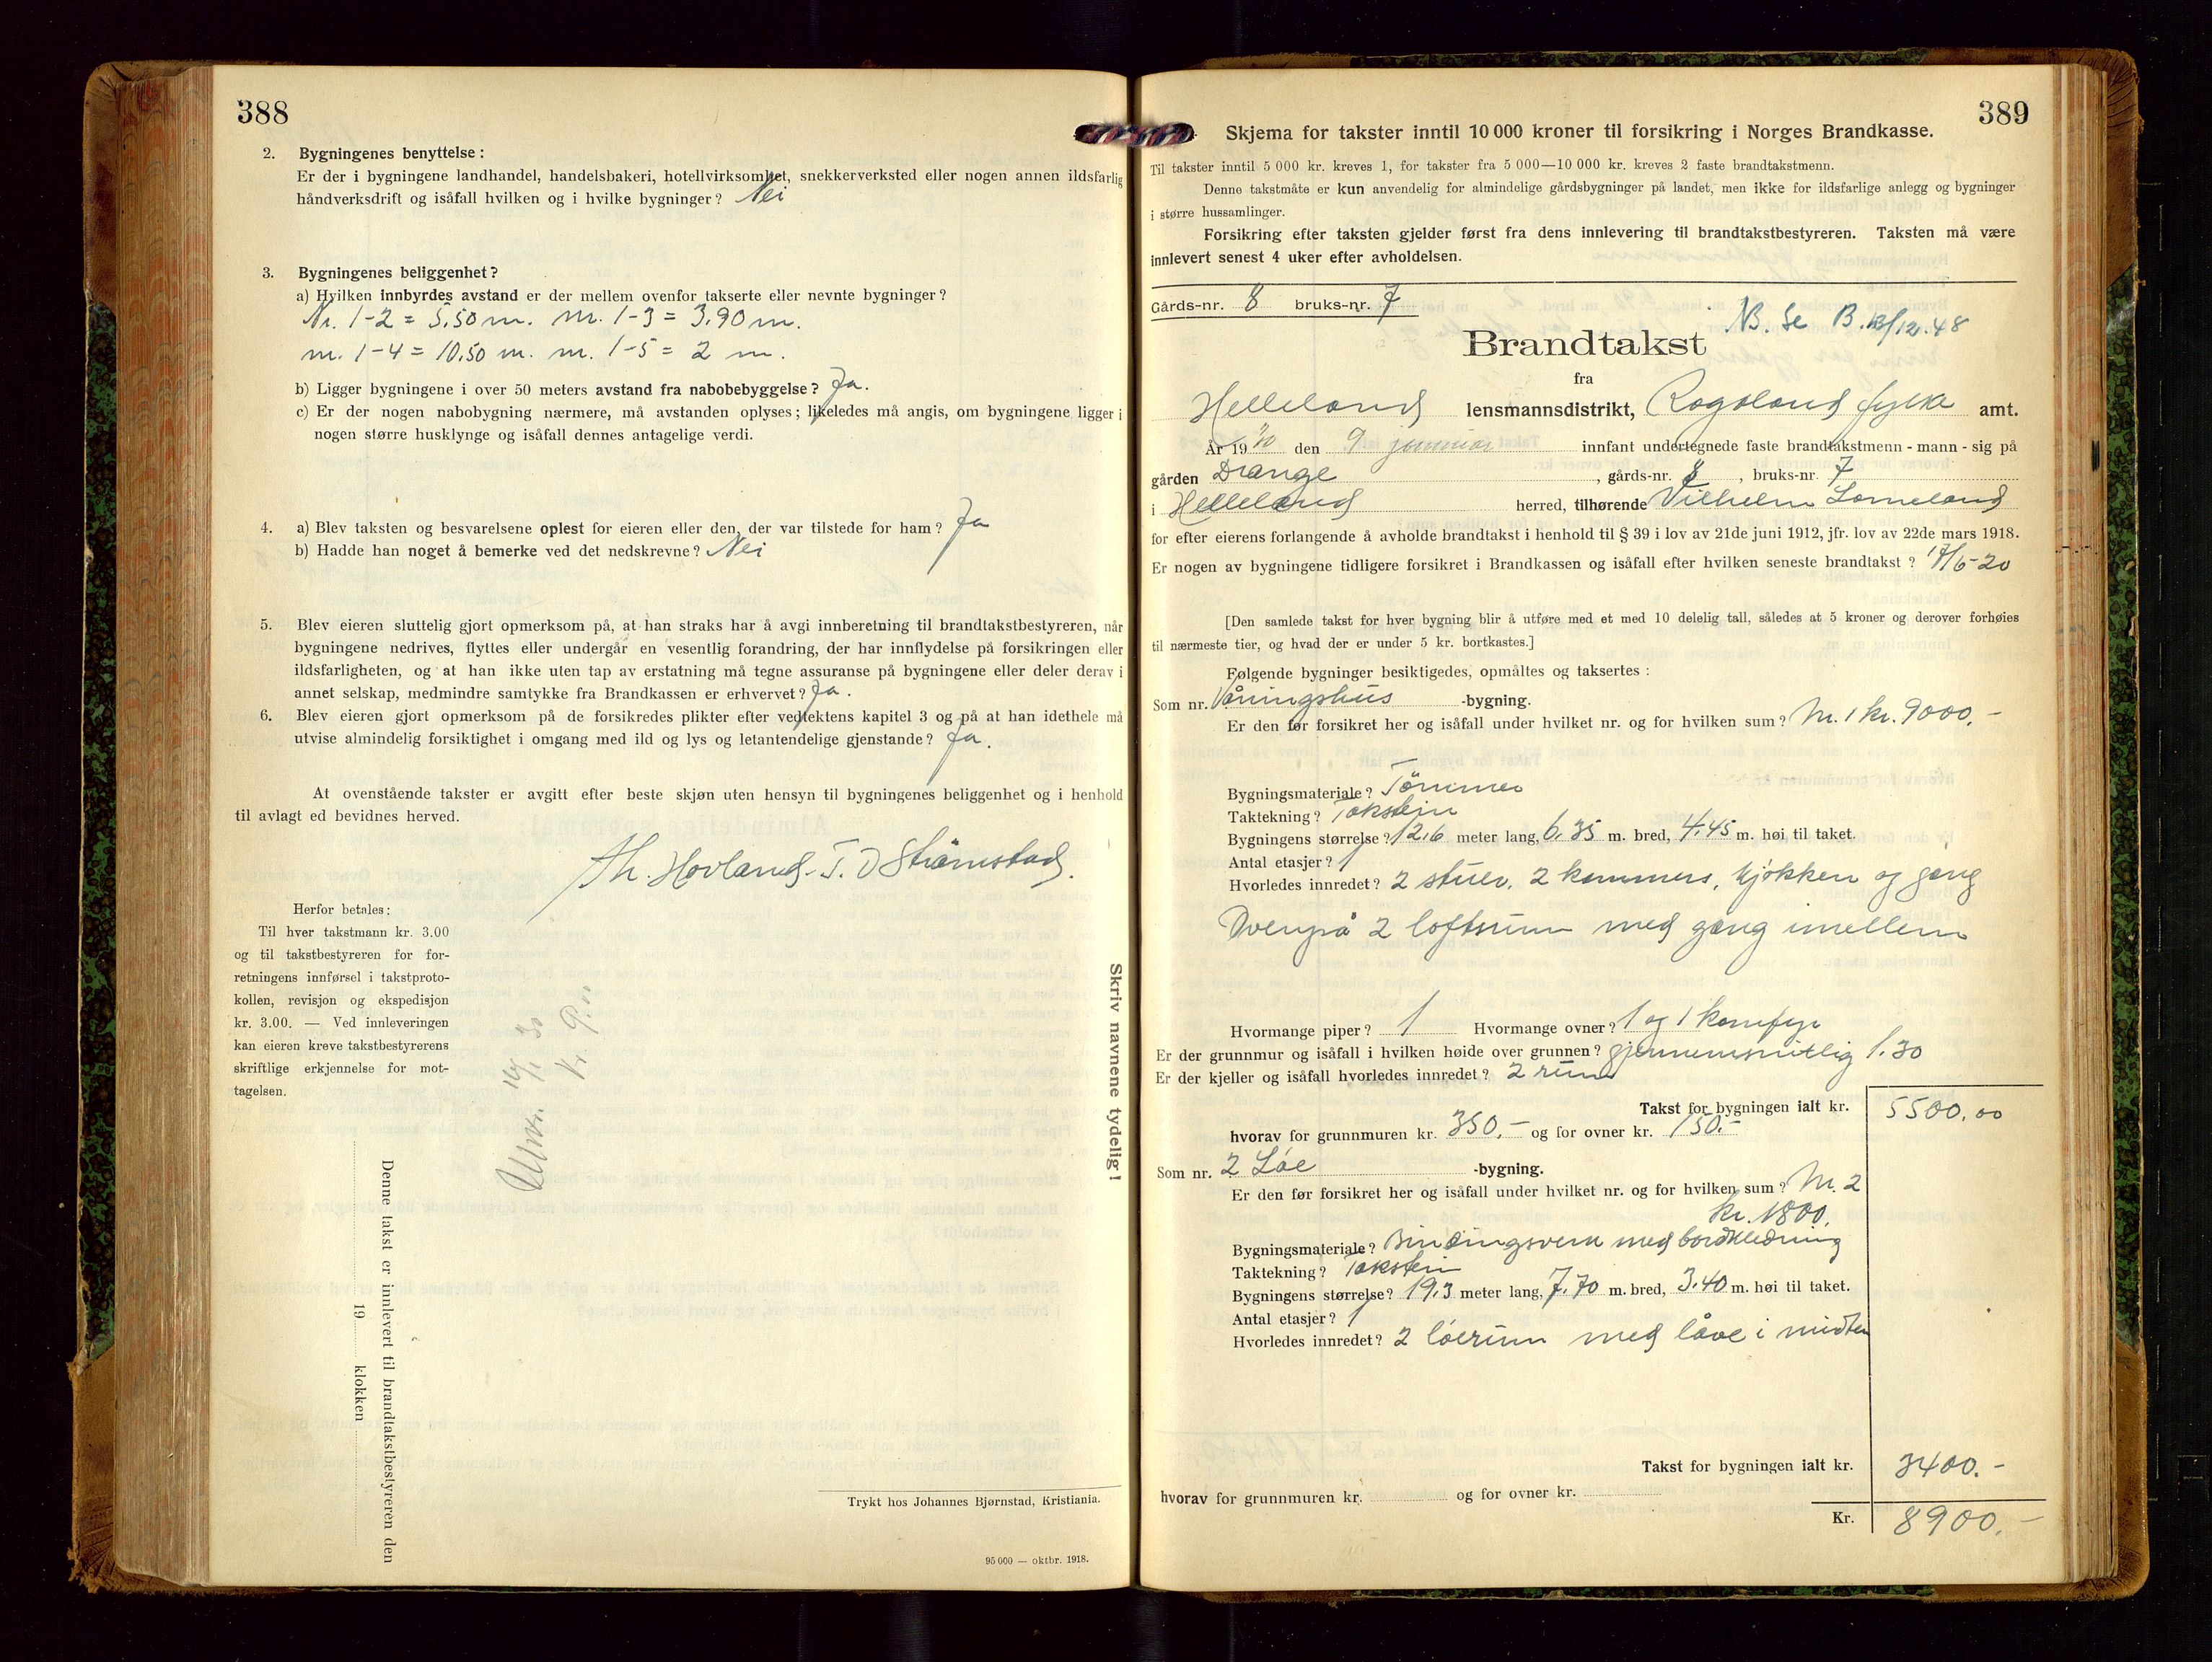 388
2. Bygningenes benyttelse:
Er der i bygningene landhandel, handelsbakeri, hotellvirksomhet, snekkerverksted eller nogen annen ildsfarlig
håndverksdrift og isåfall hvilken og i hvilke bygninger? Nei
3. Bygningenes beliggenhet?
a) Hvilken innbyrdes avstand er der mellem ovenfor takserte eller nevnte bygninger?
Nr. 1-2 = 5.50 m. nr. 1-3 = 3.90 m.
nr. 1-4 = 10.50 m. nr. 1-5 = 2 m.
b) Ligger bygningene i over 50 meters avstand fra nabobebyggelse? Ja.
c) Er der nogen nabobygning nærmere, må avstanden oplyses; likeledes må angis, om bygningene ligger i
nogen større husklynge og isåfall dennes antagelige verdi.
4. a) Blev taksten og besvarelsene oplest for eieren eller den, der var tilstede for ham? Ja
b) Hadde han noget å bemerke ved det nedskrevne? Nei
5. Blev eieren sluttelig gjort opmerksom på, at han straks har å avgi innberetning til brandtakstbestyreren, når
bygningene nedrives, flyttes eller undergår en vesentlig forandring, der har innflydelse på forsikringen eller
ildsfarligheten, og at han ikke uten tap av erstatning må tegne assuranse på bygningene eller deler derav i
annet selskap, medmindre samtykke fra Brandkassen er erhvervet? Ja.
6. Blev eieren gjort opmerksom på de forsikredes plikter efter vedtektens kapitel 3 og på at han idethele må
utvise almindelig forsiktighet i omgang med ild og lys og letantendelige gjenstande? Ja.
At ovenstående takster er avgitt efter beste skjøn uten hensyn til bygningenes beliggenhet og i henhold
til avlagt ed bevidnes herved.
Th. Hovland. T. O Strömstad.
Herfor betales:
Til hver takstmann kr. 3.00
og til takstbestyreren for for-
retningens innførsel i takstproto-
kollen, revisjon og ekspedisjon
kr. 3.00. — Ved innleveringen
kan eieren kreve takstbestyrerens
skriftlige erkjennelse for mot-
tagelsen.
Denne takst er innlevert til brandtakstbestyreren den
19 klokken
Skriv navnene tydelig!
Trykt hos Johannes Bjørnstad, Kristiania.
95 000 — oktbr. 1918.
389
Skjema for takster inntil 10 000 kroner til forsikring i Norges Brandkasse.
Til takster inntil 5 000 kr. kreves 1, for takster fra 5 000—10 000 kr. kreves 2 faste brandtakstmenn.
Denne takstmåte er kun anvendelig for almindelige gårdsbygninger på landet, men ikke for ildsfarlige anlegg og bygninger
i større hussamlinger.
Forsikring efter taksten gjelder først fra dens innlevering til brandtakstbestyreren. Taksten må være
innlevert senest 4 uker efter avholdelsen.
Gårds-nr. 8 bruks-nr. 7
N.B. Se B. 13/12.48
Brandtakst
fra
Helleland lensmannsdistrikt, Rogaland fylke amt.
År 1930 den 9 januar innfant undertegnede faste brandtakstmenn - mann - sig på
gården Drange, gårds-nr. 8, bruks-nr. 7
i Helleland herred, tilhørende Vilhelm Lomeland
for efter eierens forlangende å avholde brandtakst i henhold til § 39 i lov av 21de juni 1912, jfr. lov av 22de mars 1918.
Er nogen av bygningene tidligere forsikret i Brandkassen og isåfall efter hvilken seneste brandtakst? 17/6-20
[Den samlede takst for hver bygning blir å utføre med et med 10 delelig tall, således at 5 kroner og derover forhøies
til nærmeste tier, og hvad der er under 5 kr. bortkastes.]
Følgende bygninger besiktigedes, opmåltes og taksertes:
Som nr. Våningshus -bygning.
Er den før forsikret her og isåfall under hvilket nr. og for hvilken sum? Nr. 1 kr. 9000.-
Bygningsmateriale? Tömmer
Taktekning? Takstein
Bygningens størrelse? 12.6 meter lang, 6.35 m. bred, 4.45 m. høi til taket.
Antal etasjer? 1
Hvorledes innredet? 2 stuer, 2 kammers, kjökken og gang
Ovenpå 2 loftsrum med gang imellem
Hvormange piper? 1 Hvormange ovner? 1 og 1 komfyr
Er der grunnmur og isåfall i hvilken høide over grunnen? gjennemsnitlig 1.30
Er der kjeller og isåfall hvorledes innredet? 2 rum
Takst for bygningen ialt kr. 5500.00
hvorav for grunnmuren kr. 350.- og for ovner kr. 150.-
Som nr. 2 Löe -bygning.
Er den før forsikret her og isåfall under hvilket nr. og for hvilken sum? Nr. 2
kr. 1800.
Bygningsmateriale? Bindingsverk med bordkledning
Taktekning? Takstein
Bygningens størrelse? 19.3 meter lang, 7.70 m. bred, 3.40 m. høi til taket.
Antal etasjer? 1
Hvorledes innredet? 2 löerum med låve i midten
Takst for bygningen ialt kr. 3400.-
hvorav for grunnmuren kr. og for ovner kr.
Kr. 8900.-